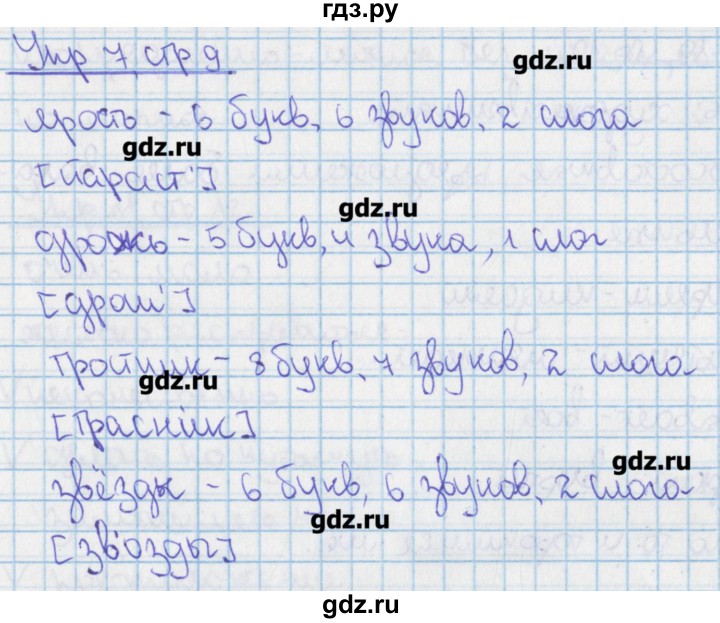 гдз.ру
Упр 7 стр 9
gdz.ru
ярость - 6 букв, 6 звуков, 2 слога
gdz.ru
[йараст']
gdz.ru
дрожь - 5 букв, 4 звука, 1 слог
[драш']
тростник - 8 букв, 7 звуков, 2 слога
gdz.ru
[траснiк]
gdz.ru
звёзды - 6 букв, 6 звуков, 2 слога
gdz.ru
[зв'озды]
gdz.ru